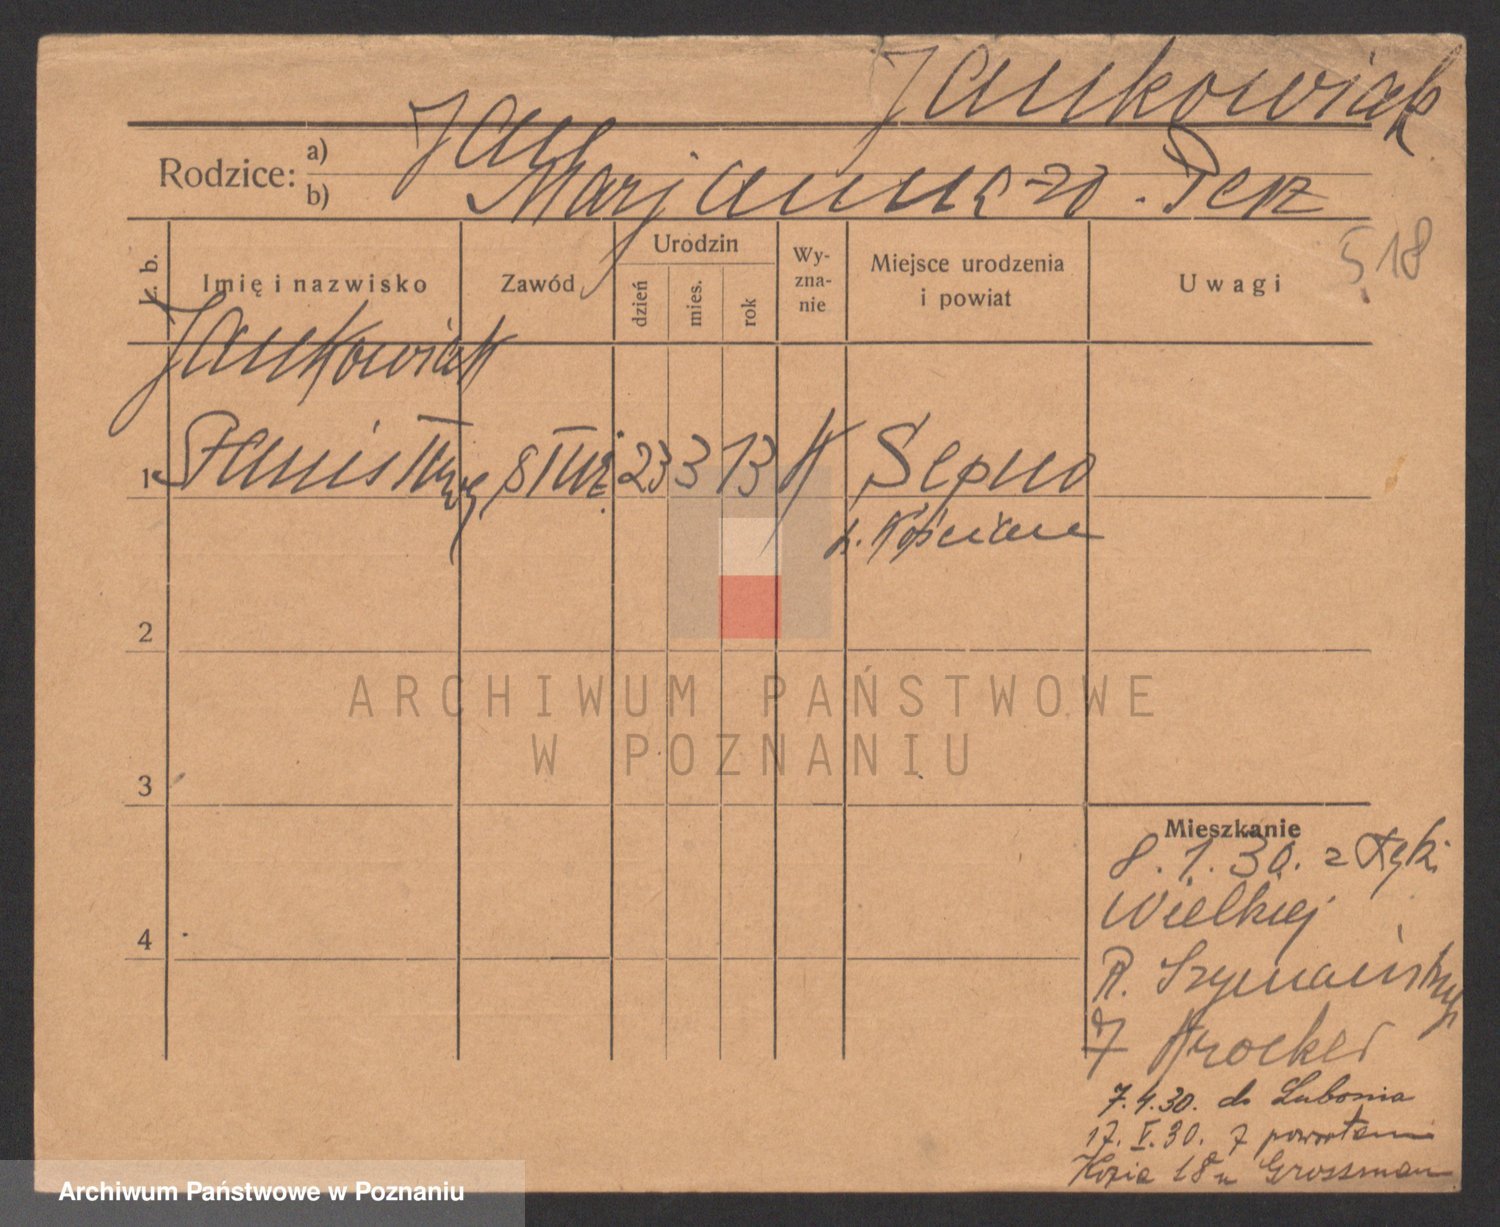 Jankowiak
Rodzice: a) Jan
b) Marjanna zd. Perz
L. b.
Imię i nazwisko
Zawód
Urodzin
dzień
mies.
rok
Wy-
zna-
nie
Miejsce urodzenia
i powiat
Uwagi
18
Jankowiak
1 służ. 23 3 13 K Sepno
p. Kościan
2
3
4
ARCHIWUM PAŃSTWOWE
W POZNANIU
Mieszkanie
8. 1. 30. z Łęki
Wielkiej
R. Szymański
7
7.4.30. do Lubonia
17. V. 30. z powrotem
Kozia 18 u Grossman
Archiwum Państwowe w Poznaniu